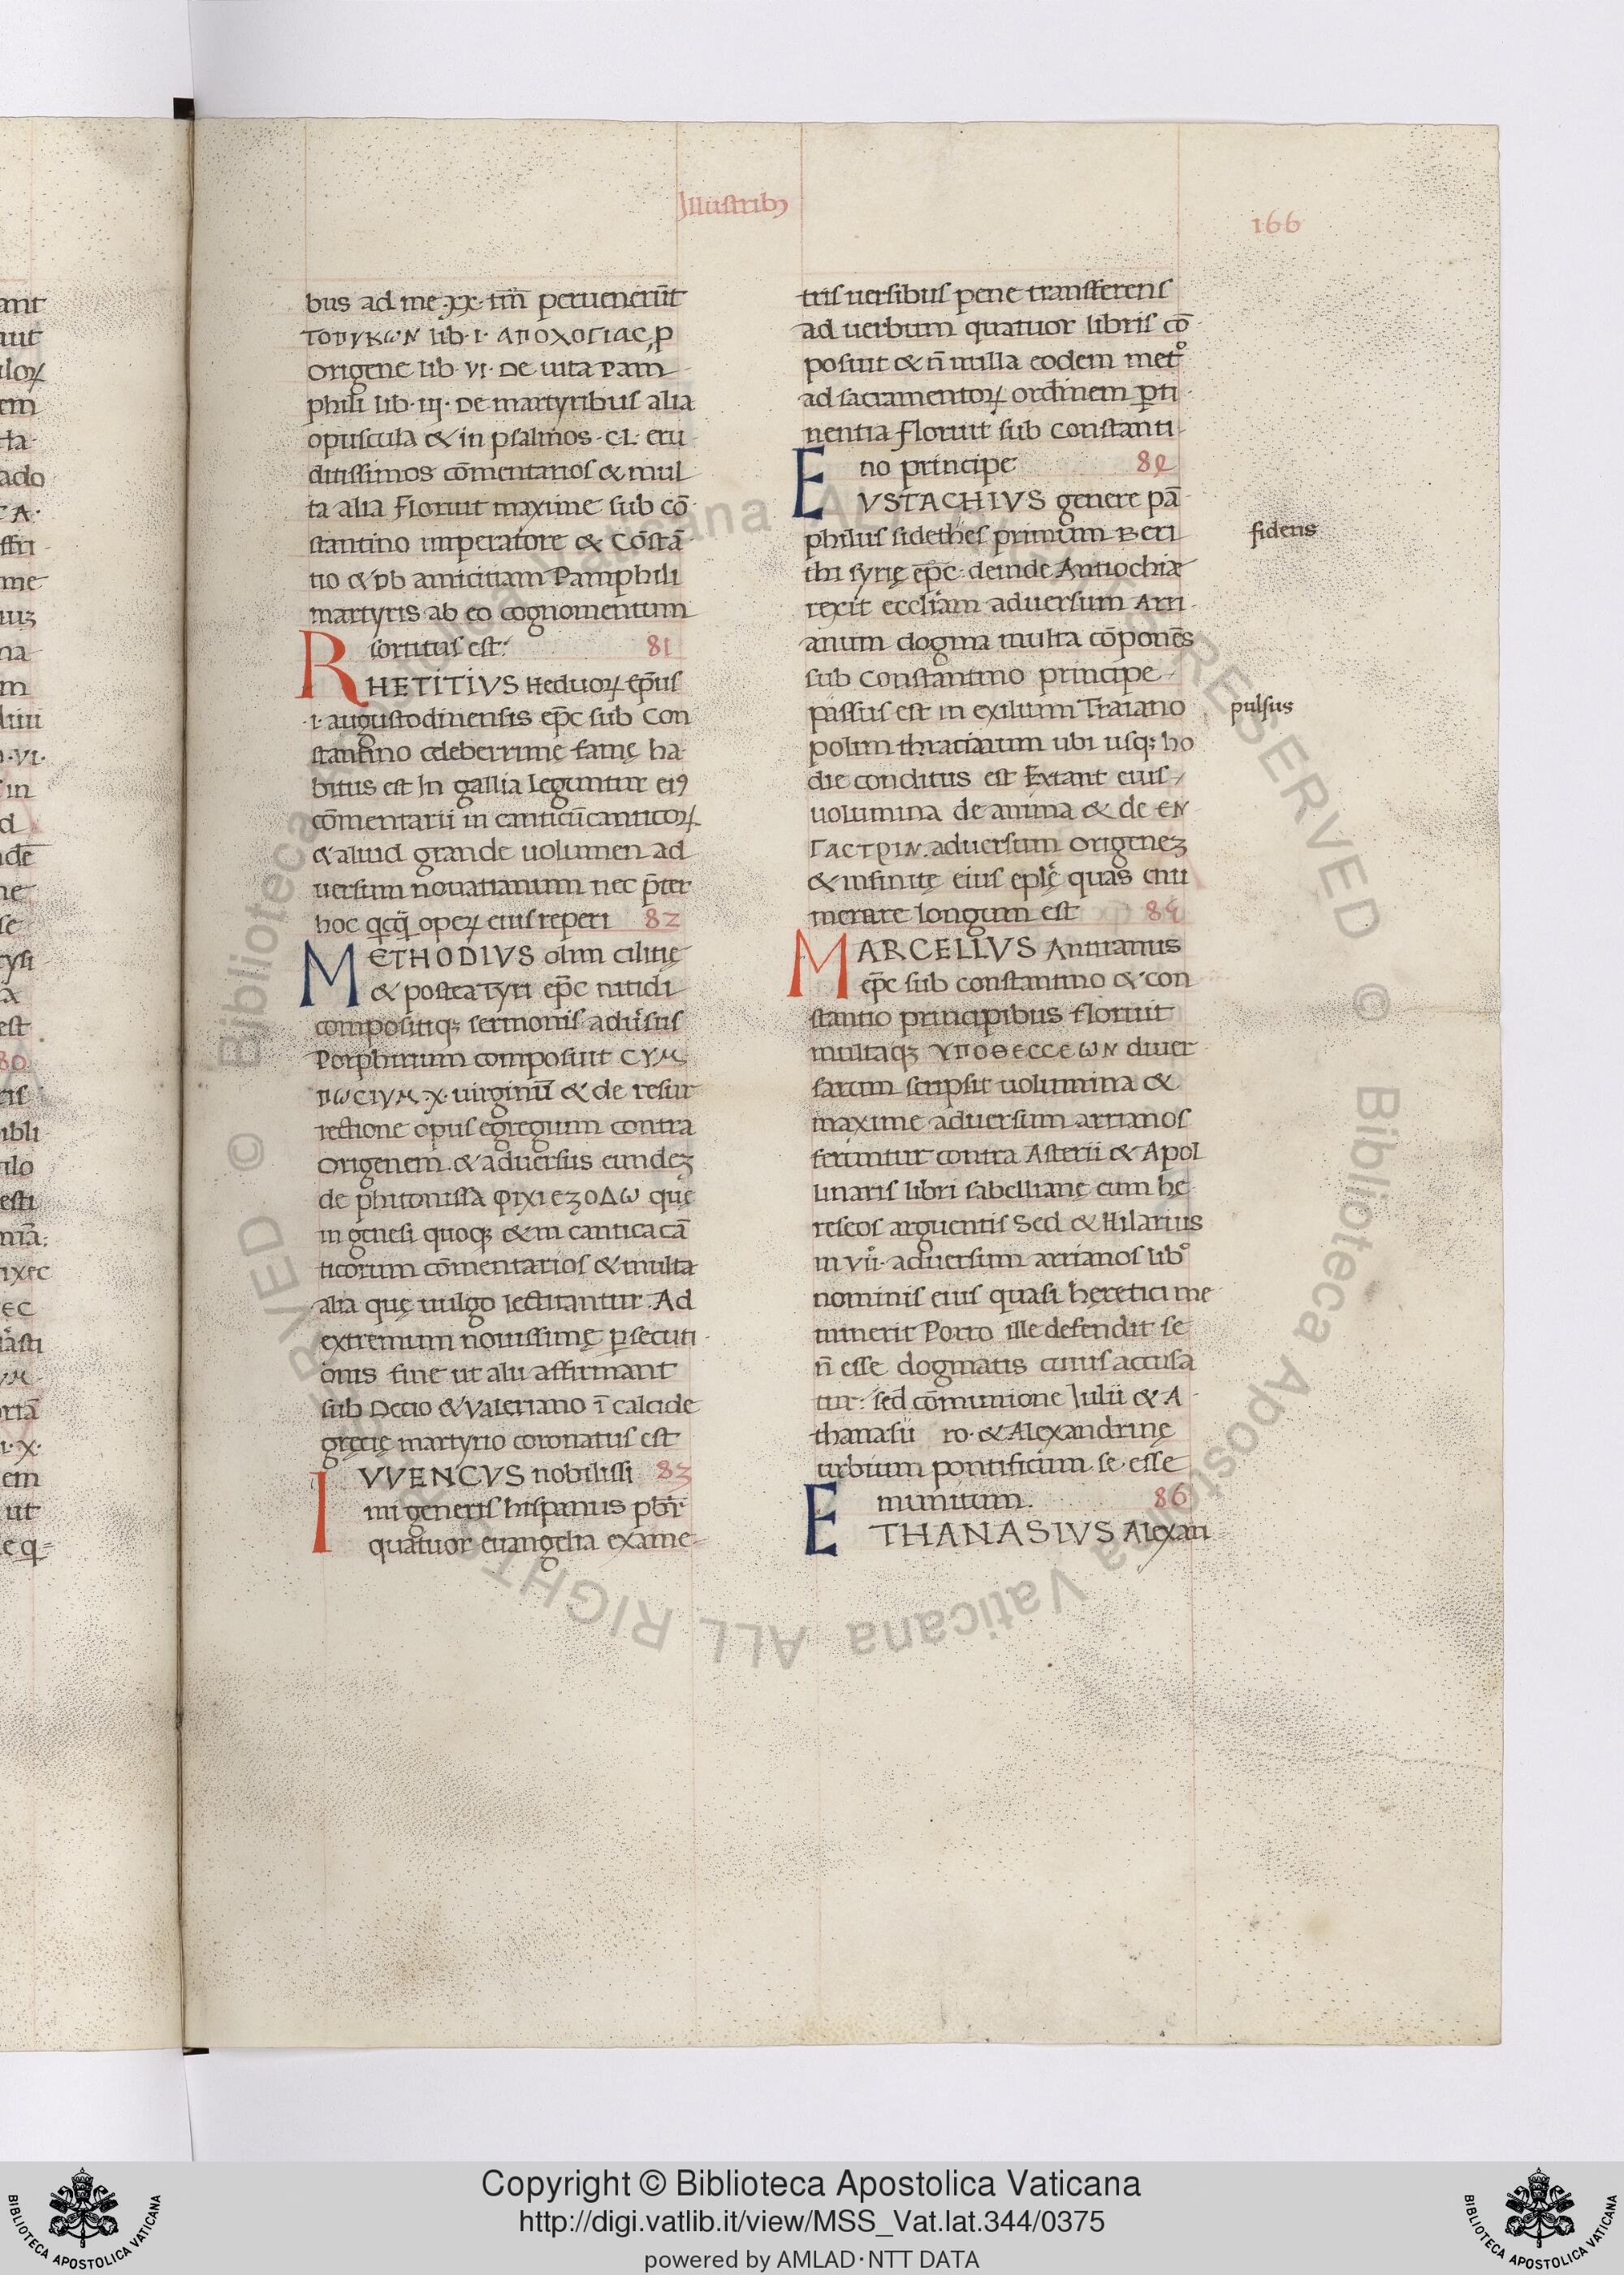 Illustribꝫ
166
bus ad me xx. tm̄ peruenerūt
ΤΟΠΥΚΩΝ lib. i. ΑΠΟΧΟΓΙΑC, ꝑ
origene lib. vi. De uita Pam
phili lib. iij. De martyribus alia
opuscula & in psalmos. CL. eru
ditissimos cōmentarios & mul
ta alia floruit maxime sub cō
stantino imperatore & Cōstā
tio & ob amicitiam Pamphili
martyris ab eo cognomentum
sortitus est: 81
RHETITIVS Heduoꝝ ep̄us
.i. augustodinensis ep̄c sub Con
stantino celeberrime famę ha
bitus est In gallia Leguntur eiꝰ
cōmentarii in canticū canticoꝝ
& aliud grande uolumen ad
uersum nouatianum nec p̄ter
hoc qcq̄ opeꝝ eius reperi 82
METHODIVS olim cilitię
& postea Tyri ep̄c nitidi
compositiqꝫ sermonis adūsus
Porphirium composuit CYM
ΠΩCIYM. X. uirginū & de resur
rectione opus egregium contra
Origenem. & aduersus eundeꝫ
de phitonissa ΦΙΧΙΕΖΟΔΩ quę
in genesi quoqꝫ & in cantica cā
ticorum cōmentarios & multa
alia quę uulgo lectitantur. Ad
extremum nouissimę ꝑsecuti
onis fine ut alii affirmant
sub Decio & Valeriano ī calcide
gręcię martyrio coronatus est
IVVENCVS nobilissi 83
mi generis hispanus pb̄r
quatuor euangelia exame
tris uersibus pene transferens
ad uerbum quatuor libris cō
posuit & n̄ nulla eodem metº
ad sacramentoꝝ ordinem ꝑti
nentia floruit sub constanti
no principe 84
EVSTACHIVS genere pā
philus sidethes primum Beri
thi syrię ep̄c: deinde Antiochiæ
rexit eccl̄iam aduersum Arri
anum dogma multa cōponēs
sub Constantino principe
passus est in exilium Traiano
polim thraciarum ubi usqꝫ ho
die conditus est Extant eius
uolumina de anima & de ΕΝ
ΓΑCΤΡΙΝ. aduersum origeneꝫ
& infinitę eius epl̄ę quas enu
merare longum est 85
MARCELLVS Anuranus
ep̄c sub constantino & con
stantio principibus floruit
multaqꝫ ΥΠΟΘΕCCΕΩΝ diuer
sarum scripsit uolumina &
maxime aduersum arrianos
feruntur contra Asterii & Apol
linaris libri sabellianę eum hę
reseos arguentis Sed & Hilarius
in vii. aduersum arrianos libº
nominis eius quasi hęretici me
minerit Porro ille defendit se
n̄ esse dogmatis cuius accusa
tur: sed cōmunione Iulii & A
thanasii ro. & Alexandrinę
urbium pontificum se esse
munitum. 86
ETHANASIVS Alexan
fidens
pulsus
Copyright © Biblioteca Apostolica Vaticana
http://digi.vatlib.it/view/MSS_Vat.lat.344/0375
powered by AMLAD·NTT DATA